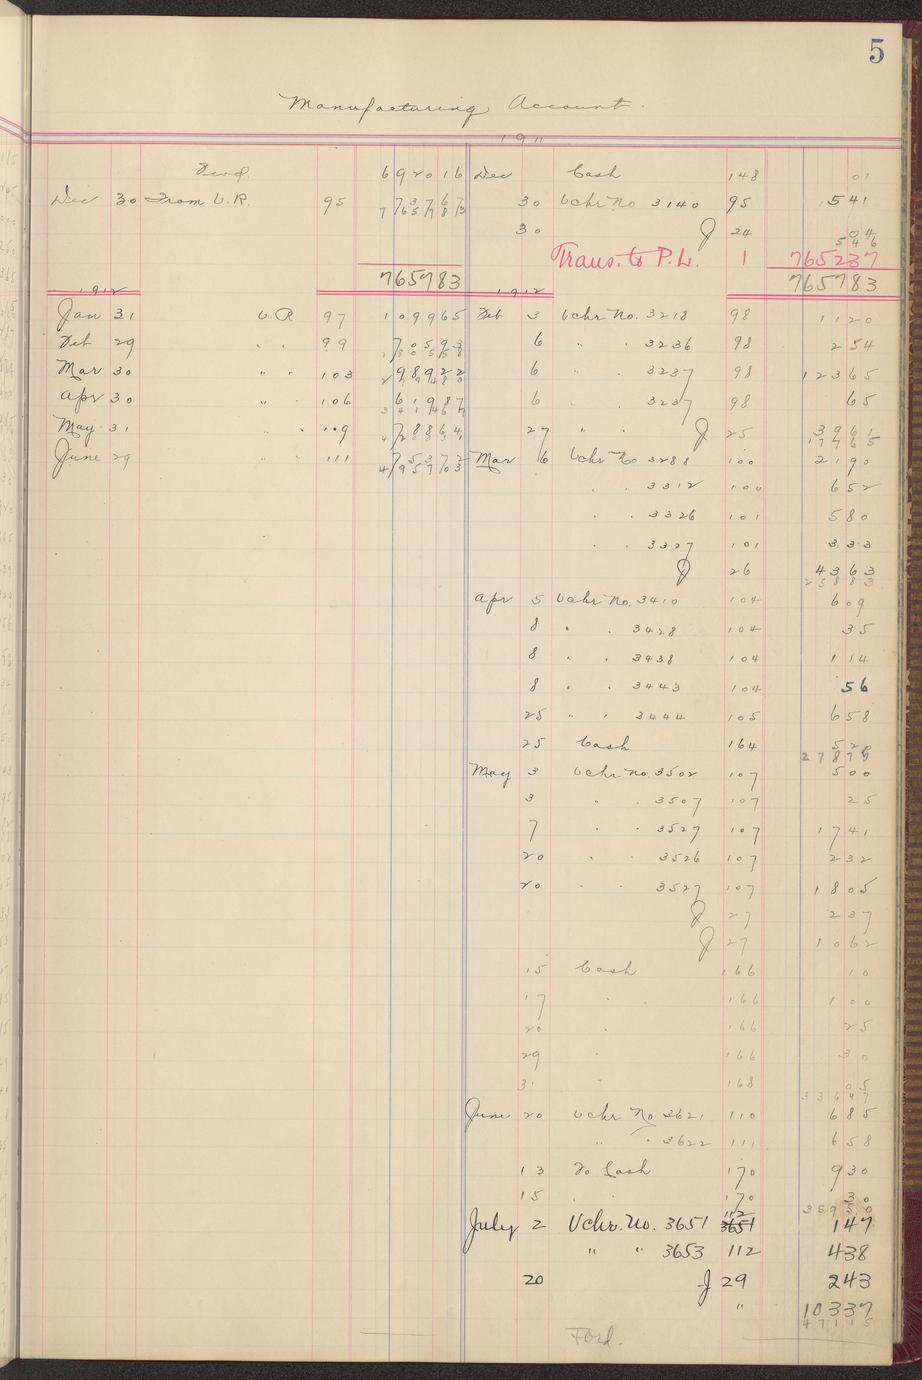 5
Manufacturing Account
1911
Fwd. 692016 Dec Cash 148 01
Dec 30 From V.R. 95 73767 30 Vchr No 3140 95 541
765783
30 J 24 04
546
Trans. to P.L. 1 765237
765783 765783
1912 1912
Jan 31 V.R 97 109965 Feb 3 Vchr No. 3218 98 1120
Feb 29 " " 99 70593 6 " " 3236 98 254
180558
Mar 30 " " 103 98922 6 " " 3237 98 12365
279480
Apr 30 " " 106 61987 6 " " 3237 98 65
341467
May 31 " " 109 78864 27 " " J 25 3961
17765
June 29 " " 111 75372 Mar 6 Vchr No 3288 100 2190
495703
" " 3312 100 652
" " 3326 101 580
" " 3327 101 333
J 26 4363
25883
Apr 5 Vchr No. 3410 104 609
8 " " 3428 104 35
8 " " 3438 104 114
8 " " 3443 104 56
25 " " 3444 105 658
25 Cash 164 520
27875
May 3 Vchr no. 3502 107 500
3 " " 3507 107 25
7 " " 3527 107 1741
20 " " 3526 107 232
20 " " 3527 107 1805
J 27 237
J 27 1062
15 Cash 166 10
17 " 166 100
20 " 166 25
29 " 166 30
31 " 168 05
33647
June 20 Vchr No 3621 110 685
" " 3622 111 658
13 To Cash 170 930
15 " " 170 30
35950
112
July 2 Vchr. No. 3651 3651 147
" " 3653 112 438
20 J 29 243
" 10337
47115
Ford.